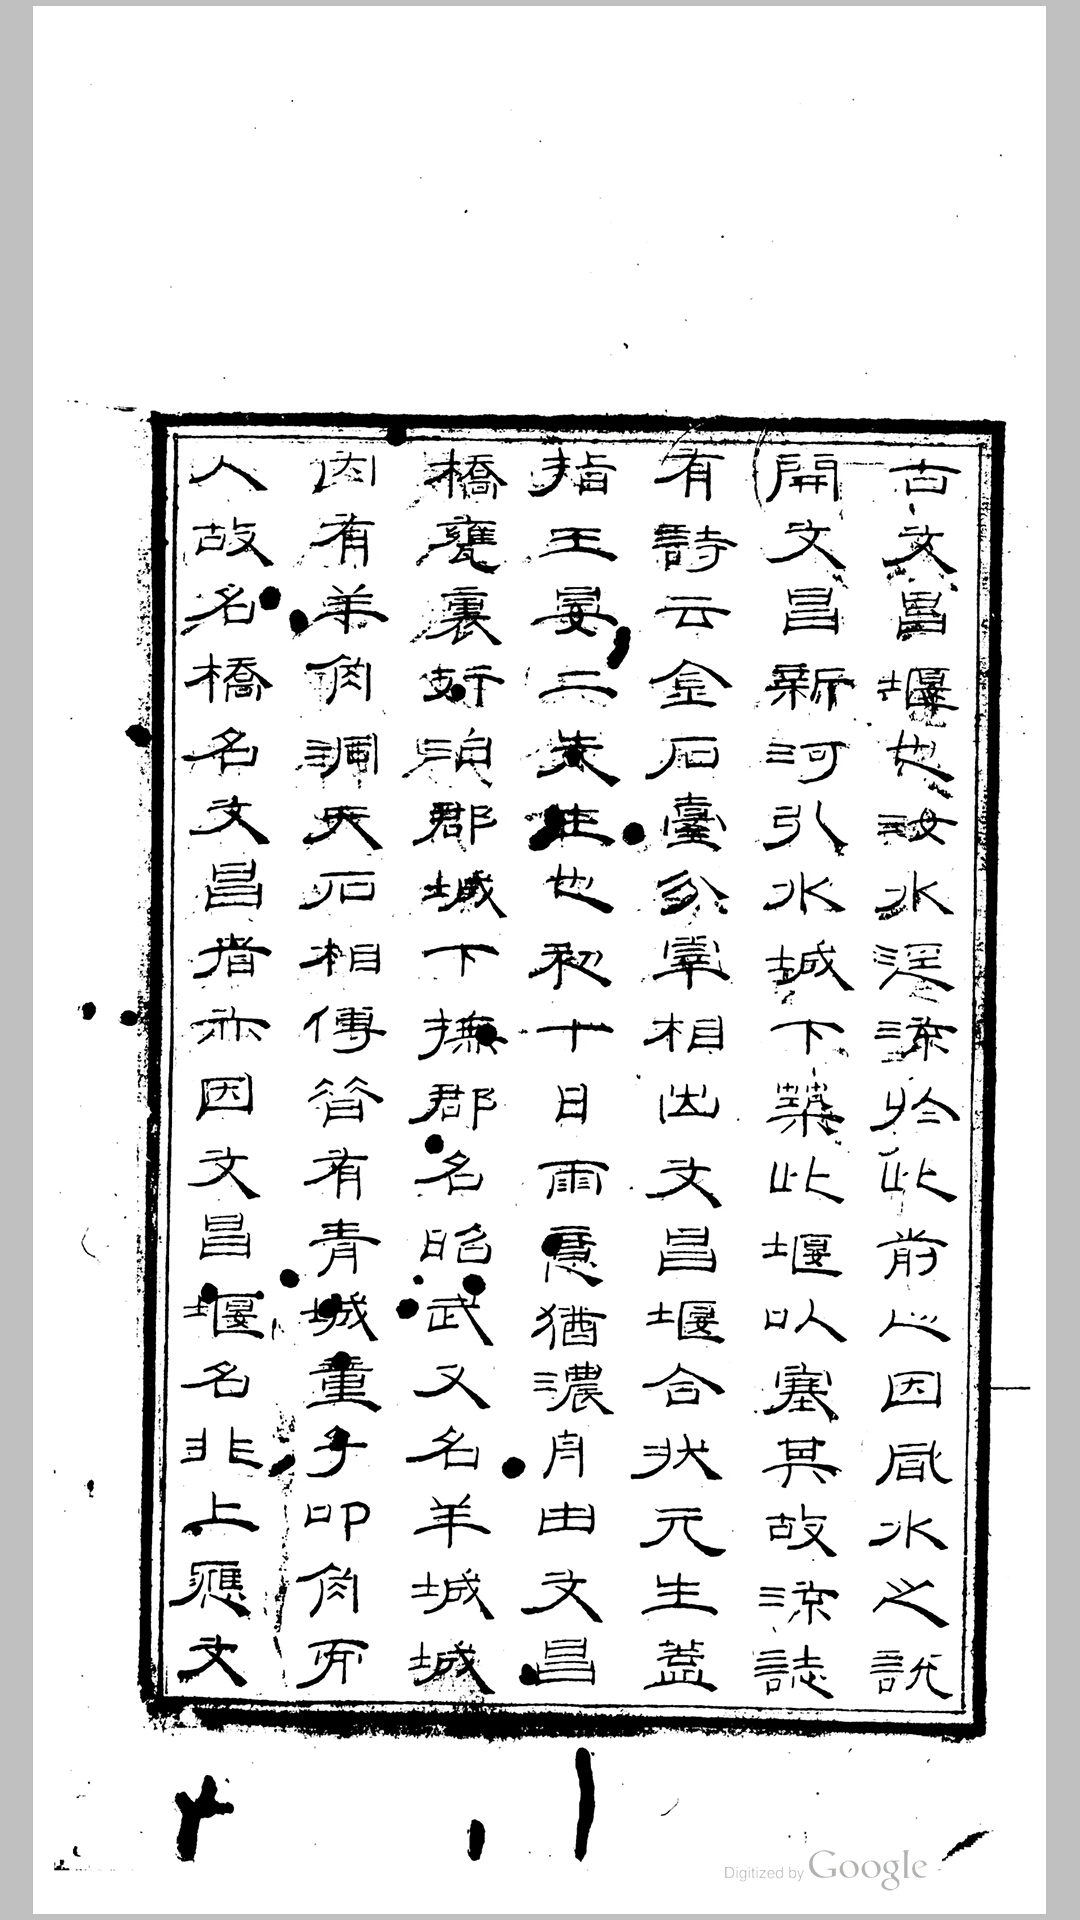 古文昌堰也汝水逕流於此前人因風水之說
開文昌新河引水城下築此堰以塞其故流誌
有詩云金石臺分宰相出文昌堰合狀元生蓋
指王晏二先生也初十日雨意猶濃舟由文昌
橋甕裏泊郡城下撫郡名昭武又名羊城城
內有羊角洞天石相傳昔有青城童子叩角而
入故名橋名文昌者亦因文昌堰名非上應文
Digitized by Google